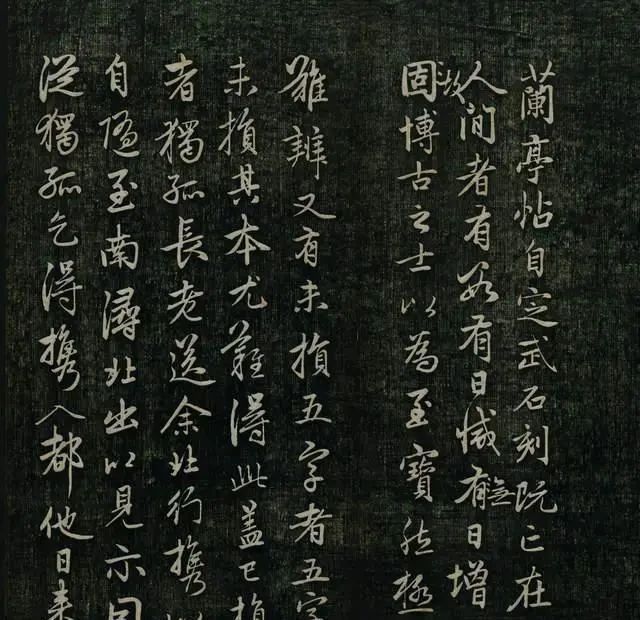 蘭亭帖自㝎武石刻既亡在
人間者有数有無日減有日增
固故博古之士以為至寶然極
難辨又有未損五字者五字
未損其本尤難得此盖已損
者獨孤長老送余北行携以
自隨至南潯北出以見示因
從獨孤乞得携入都他日来